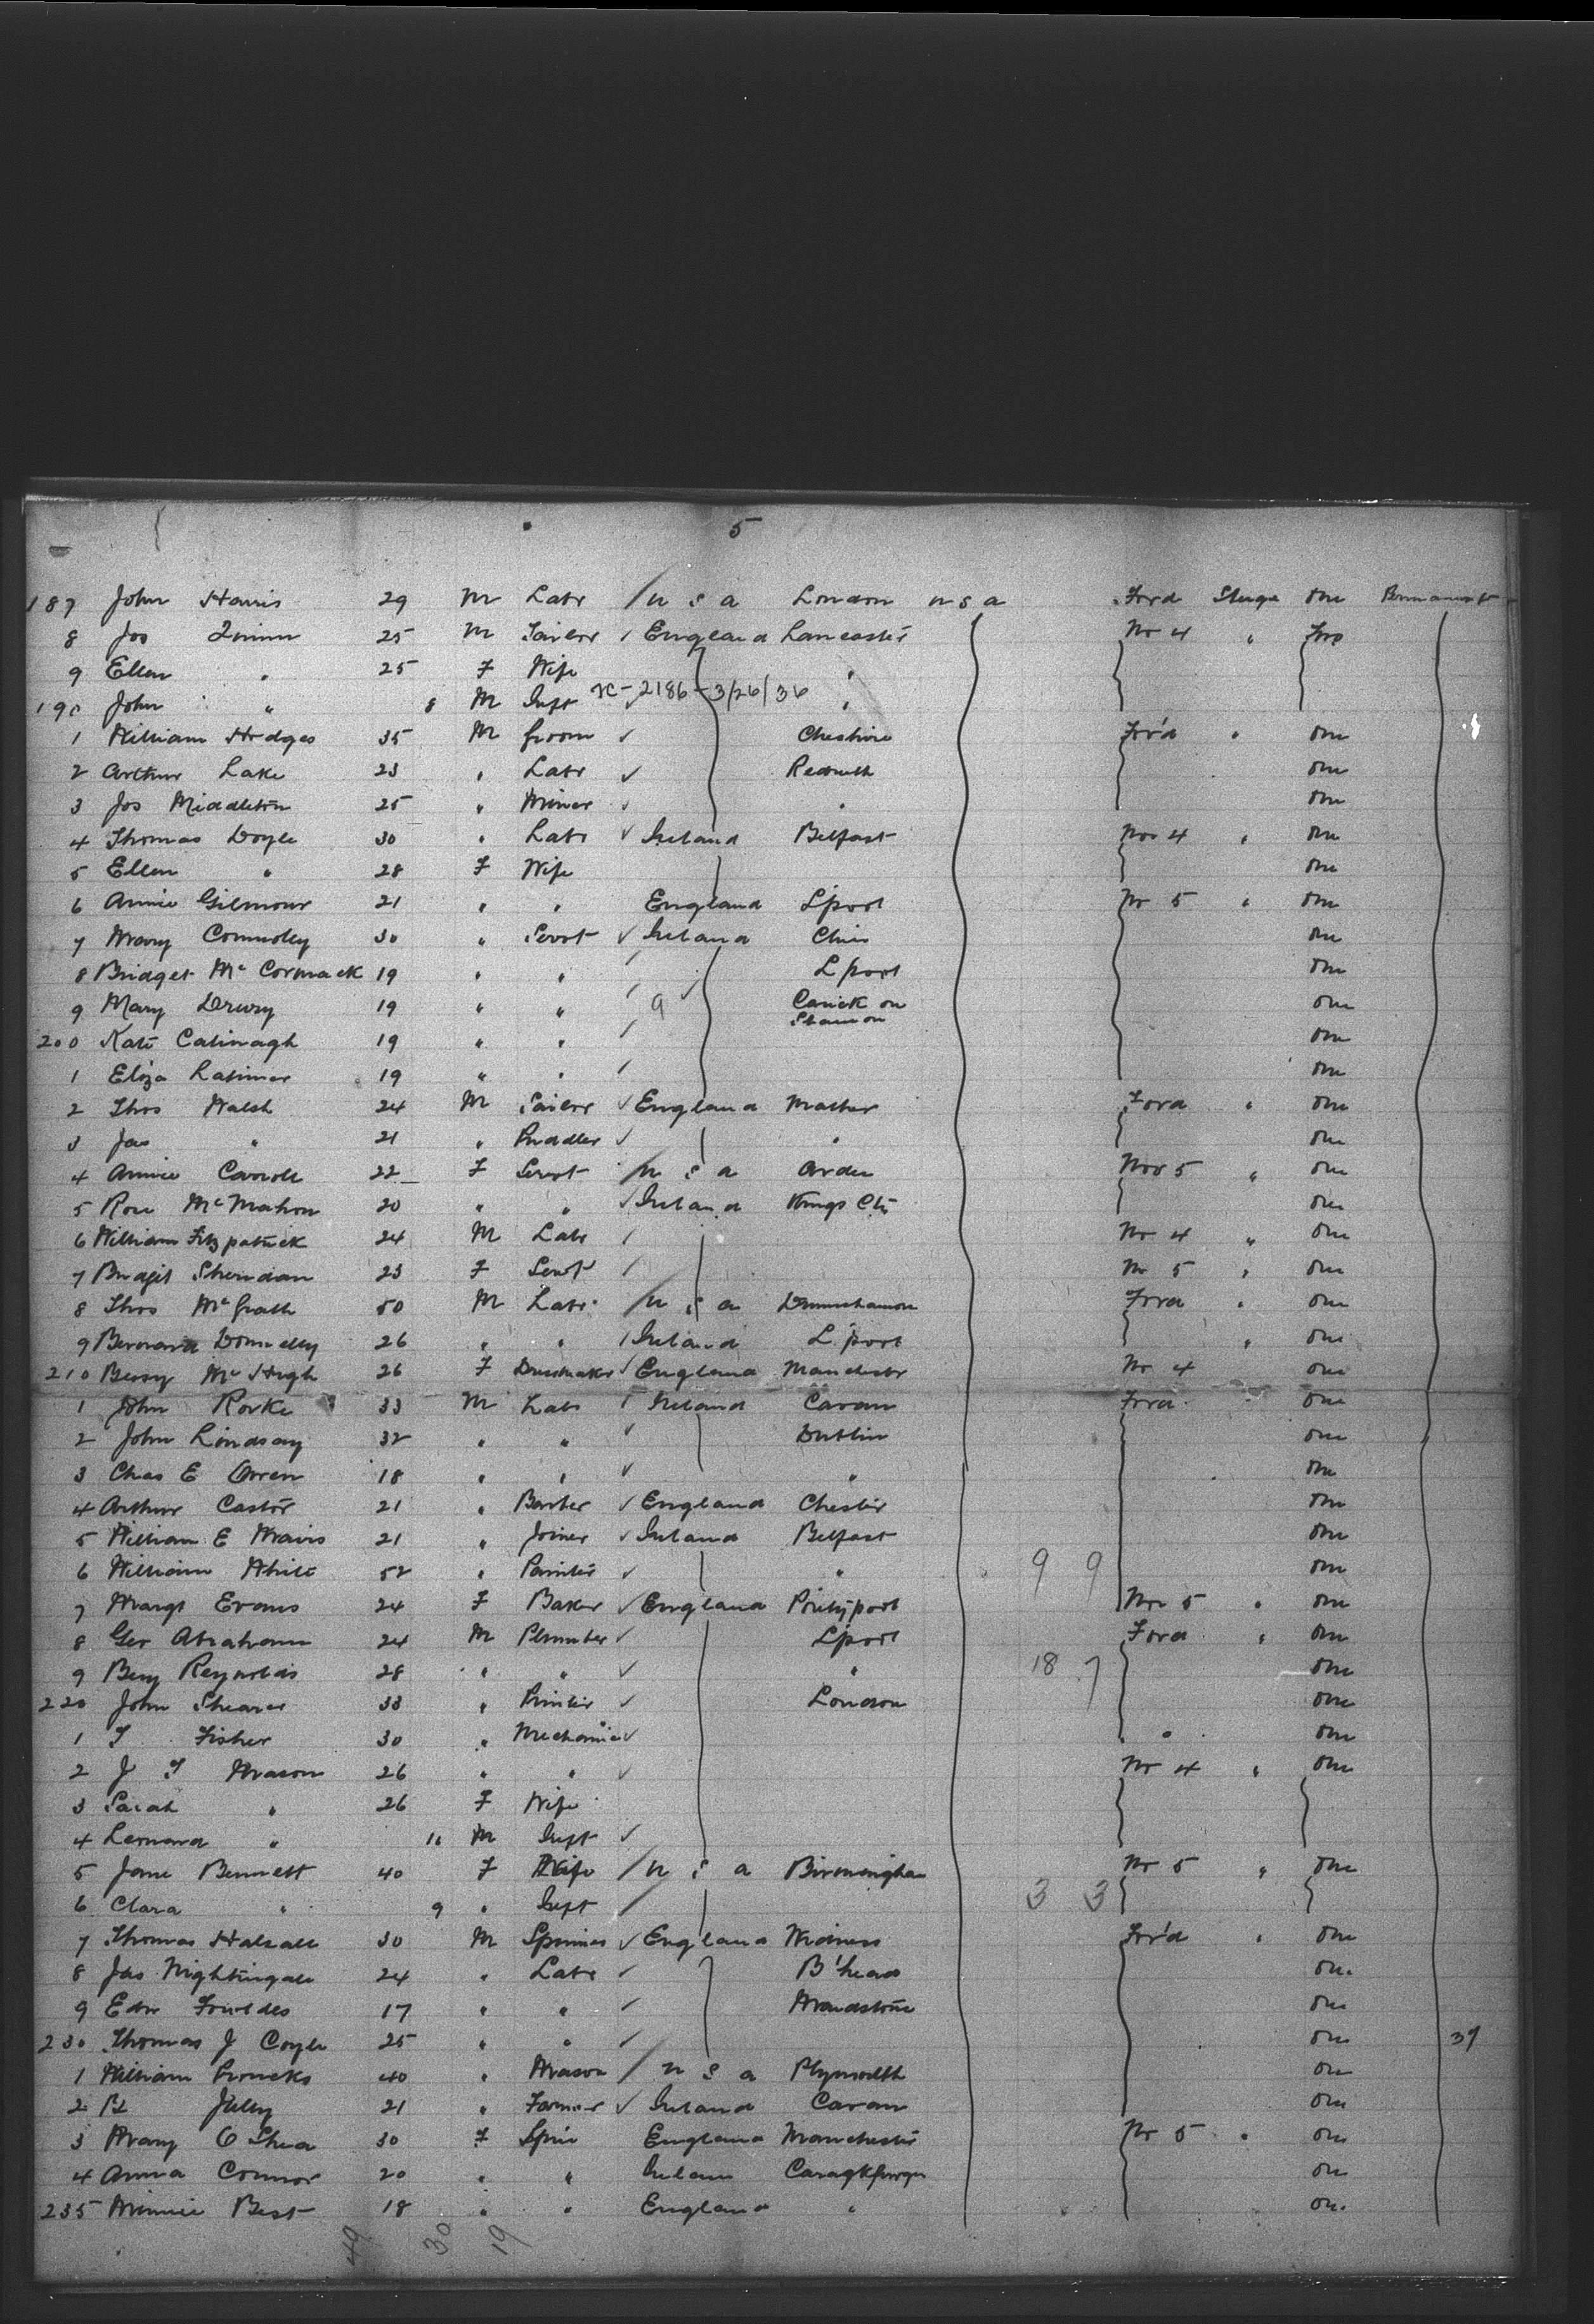 5
187 John Harris 29 M Labr / U S A London U S A Ford Sterge One Permanent
8 Jos 25 M Sailor England Lancaster No 4 " Two
9 Ellen " 25 F Wife "
190 John " 8 M Inft xc-2186-3/26/36 "
1 William Hodges 35 M Groom ✓ Cheshire For'd " One
2 Arthur Lake 23 " Labr ✓ Redruth One
3 Jos Middleton 25 " Miner ✓ " One
4 Thomas Doyle 30 " Labr ✓ Ireland Belfast No 4 " One
5 Ellen " 28 F Wife One
6 Annie Gilmour 21 " " England L'pool No 5 " One
7 Mary Connolly 30 " Servt ✓ Ireland One
8 Bridget Mc Cormack 19 " " L'pool One
9 Mary Drury 19 " " 9 ✓ Carrick on One
Shannon
200 Kate 19 " " One
1 Eliza Latimer 19 " " One
2 Thos Walsh 24 M Sailor ✓ England Ford " One
3 Jas " 21 " Puddler ✓ " One
4 Annie Carroll 22 F Servt / U S A No 5 " One
5 Rose McMahon 20 " " ✓ Ireland Kings Co One
6 William Fitzpatrick 24 M Labr No 4 " One
7 Bridget Sheridan 23 F Servt No 5 " One
8 Thos McGrath 50 M Labr / U S A Ford " One
9 Bernard Donnelly 26 " " Ireland L'pool " One
210 Bessy Mc Hugh 26 F Dressmaker ✓ England Manchester No 4 One
1 John Rorke 33 M Labr Ireland Cavan Ford " One
2 John Lindsay 32 " " Dublin One
3 Chas E 18 " " ✓ " One
4 Arthur Castor 21 " Barber ✓ England Chester One
5 William E 21 " Joiner ✓ Ireland Belfast One
6 William White 52 " Painter ✓ " 9 9 One
7 Margt Evans 24 F Baker ✓ England No 5 " One
8 Geo Abraham 24 M Plumber ✓ L'pool Ford " One
9 Benj Reynolds 28 " " ✓ " 18 7 One
220 John Shearer 33 " ✓ London One
1 T Fisher 30 " Mechanic ✓ " One
2 J T Mason 26 " " ✓ No 4 " One
3 Sarah " 26 F Wife
4 Leonard " M Inft ✓
5 Jane Bennett 40 F Wife / U S A Birmingham No 5 " One
6 Clara " 9 " Inft / 3 3
7 Thomas Halsall 30 M Spinner ✓ England Widness For'd " One
8 Jas Nightingale 24 " Labr ✓ B'head One
9 Edw 17 " " ✓ Maidstone One
230 Thomas J Coyle 25 " " ✓ One 37
1 William 40 " Mason / U S A Plymouth One
2 21 " Farmer ✓ Ireland Cavan One
3 Mary O Shea 30 F Spin England Manchester No 5 " One
4 Anna Connor 20 " " One
235 Minnie Best 18 " " England " One
49 30 19